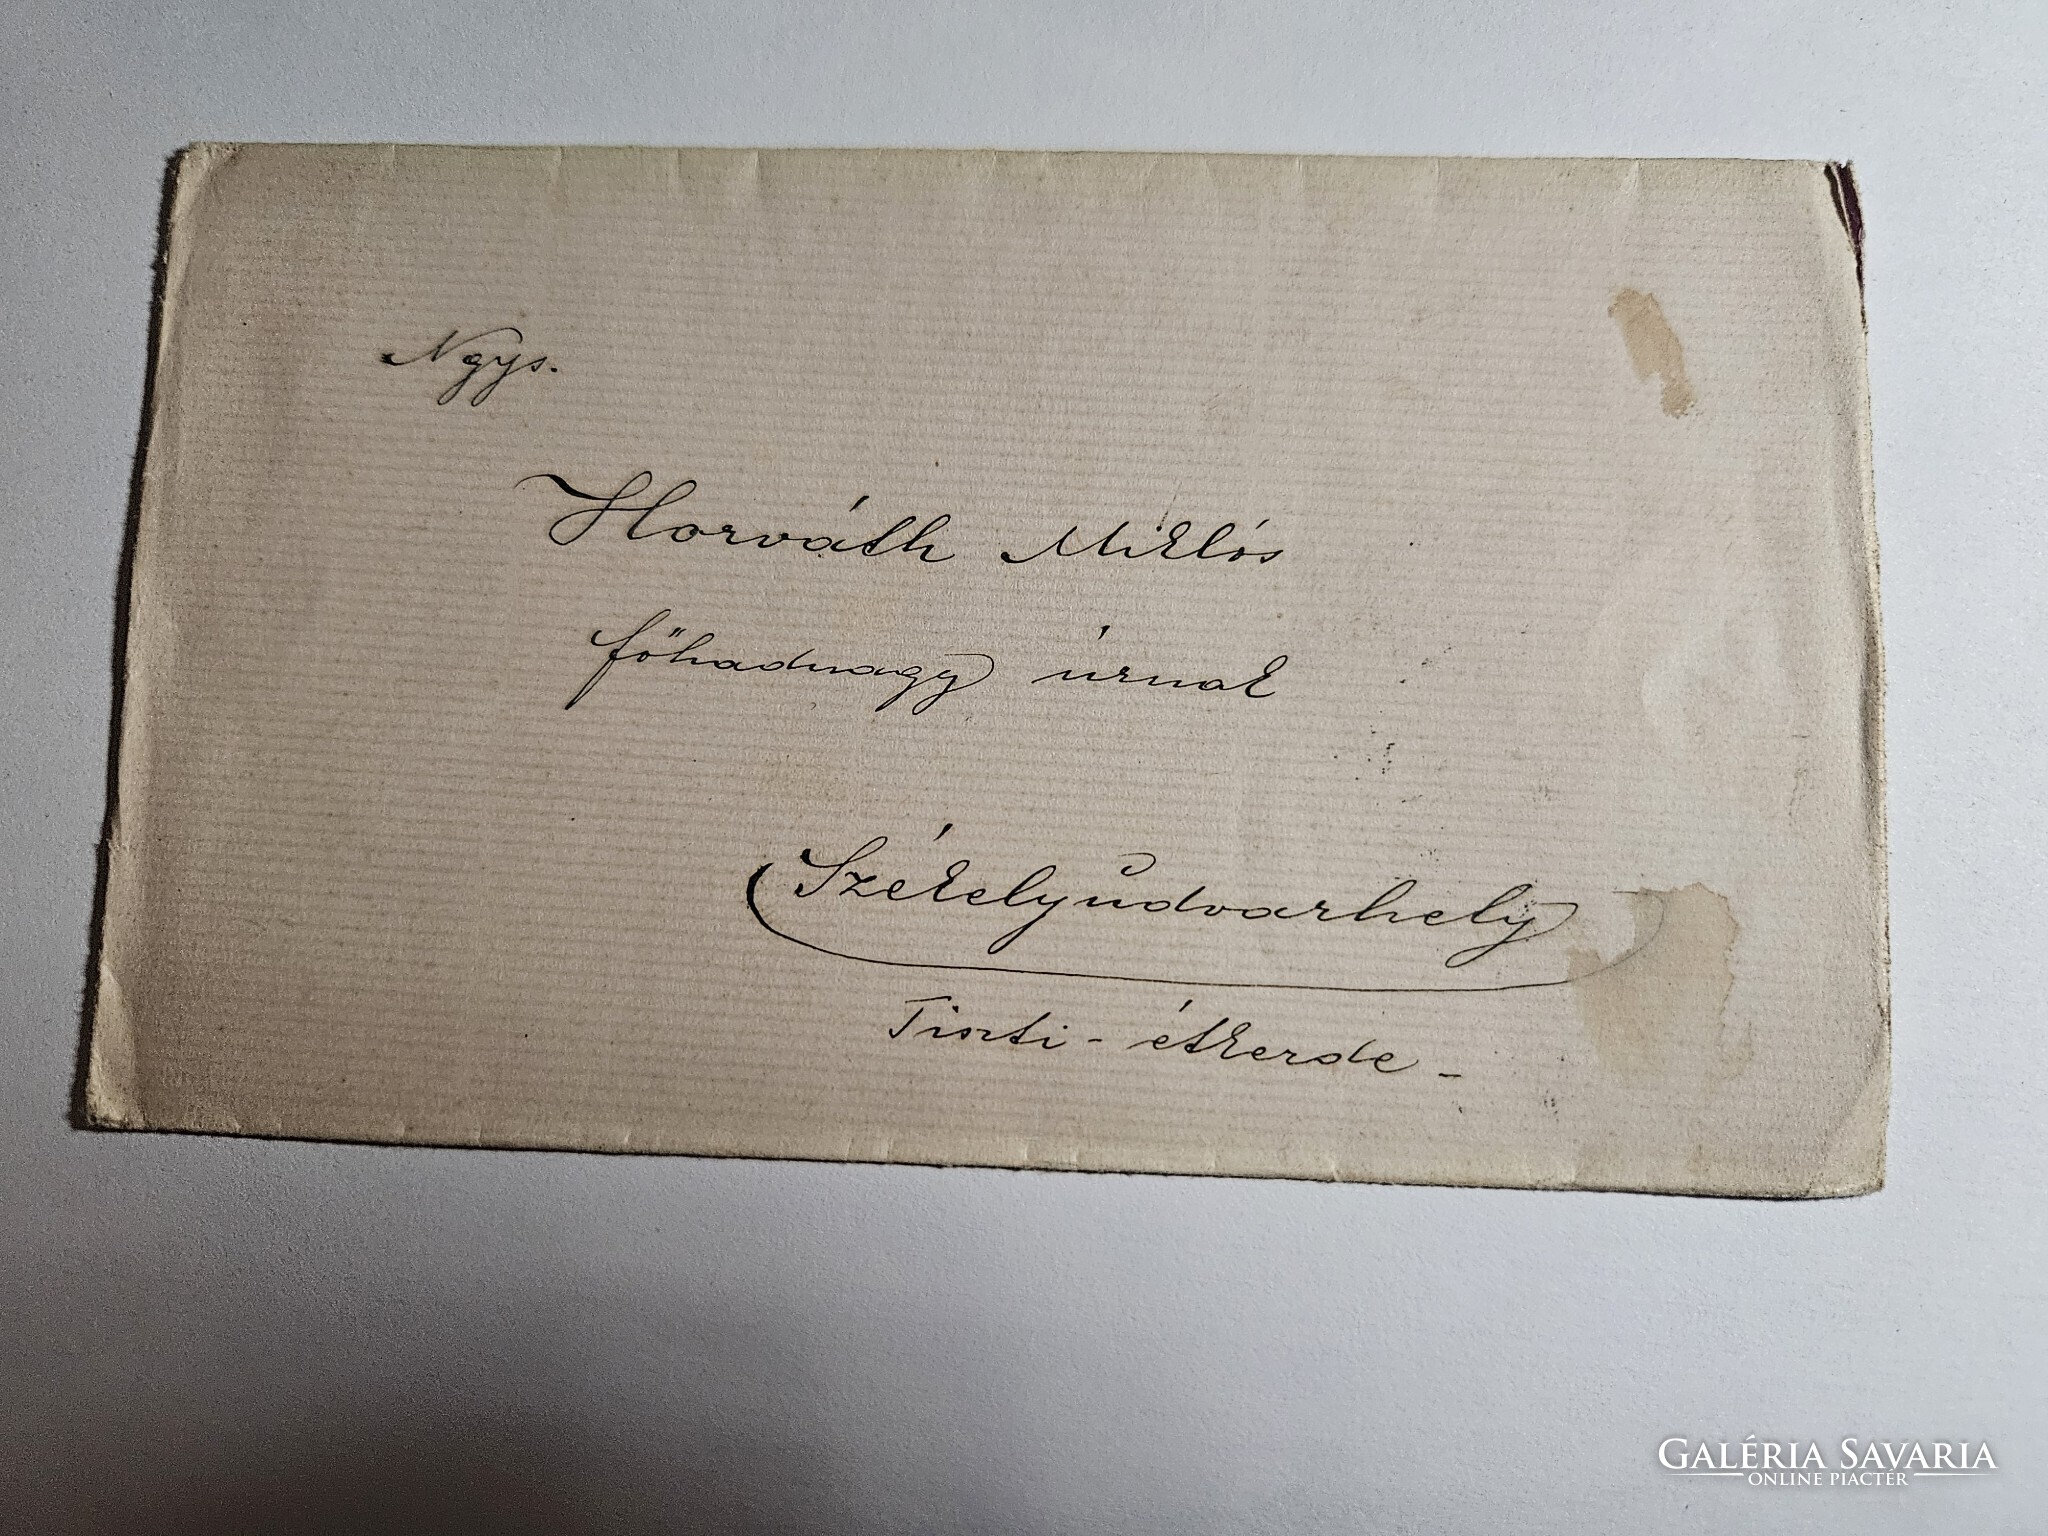 Ngys.
Horváth Miklós
főhadnagy úrnak
Székelyudvarhely
Tiszti-étkezde-
GALÉRIA SAVARIA
ONLINE PIACTÉR